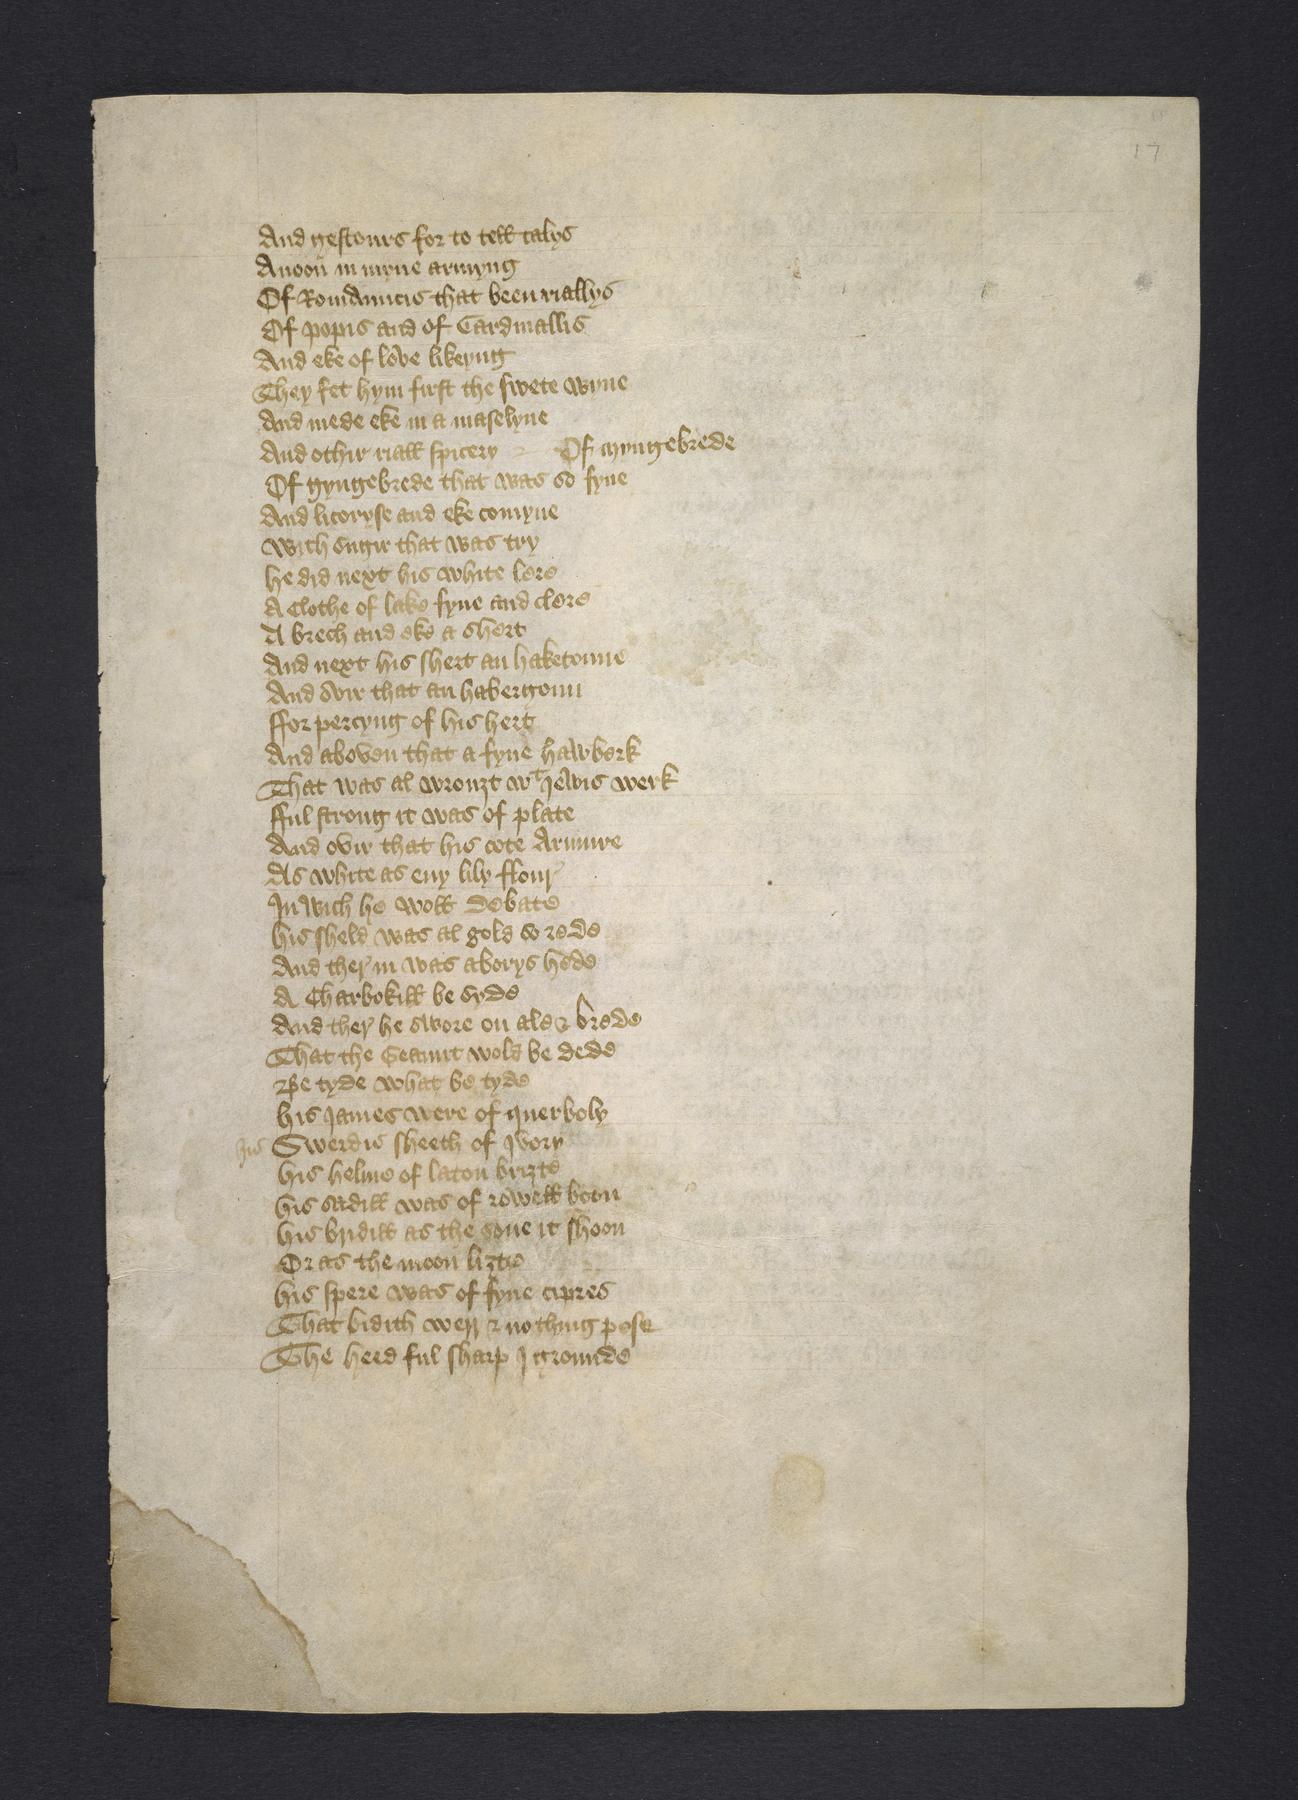 17
And gestours for to tell talys
Anoon in myne armyng
Of Romauncis that been riallys
Of popis and of Cardinallis
And eke of love likeyng
They fet hym first the swete wyne
And mede eke in a maselyne
And othir riall spicery Of gyngebrede
Of gyngebrede that was so fyne
And licoryse and eke comyne
With sugir that was try
he did next his white lere
A Clothe of lake fyne and clere
A brech and eke a shert
And next his shert an haketoune
And ovir that an habergoun
ffor percyng of his hert
And aboven that a fyne hawberk
That was al wrouȝt wᵗ Jewis werk
fful strong it was of plate
And ovir that his cote Armure
As white as eny lily flour
In wich he woll debate
his sheld was al gold so rede
And ther in was a borys hede
A Charbokill be syde
And ther he swore on ale & brede
That the Geaunt wold be dede
be tyde what be tyde
his James were of querboly
his Swerdis sheeth of Ivory
his helme of laton briȝte
his sadill was of rowell boon
his bridill as the sone it shoon
Or as the moon liȝte
his spere was of fyne cipres
That bidith werr & no thing pese
The heed ful sharp I grounde